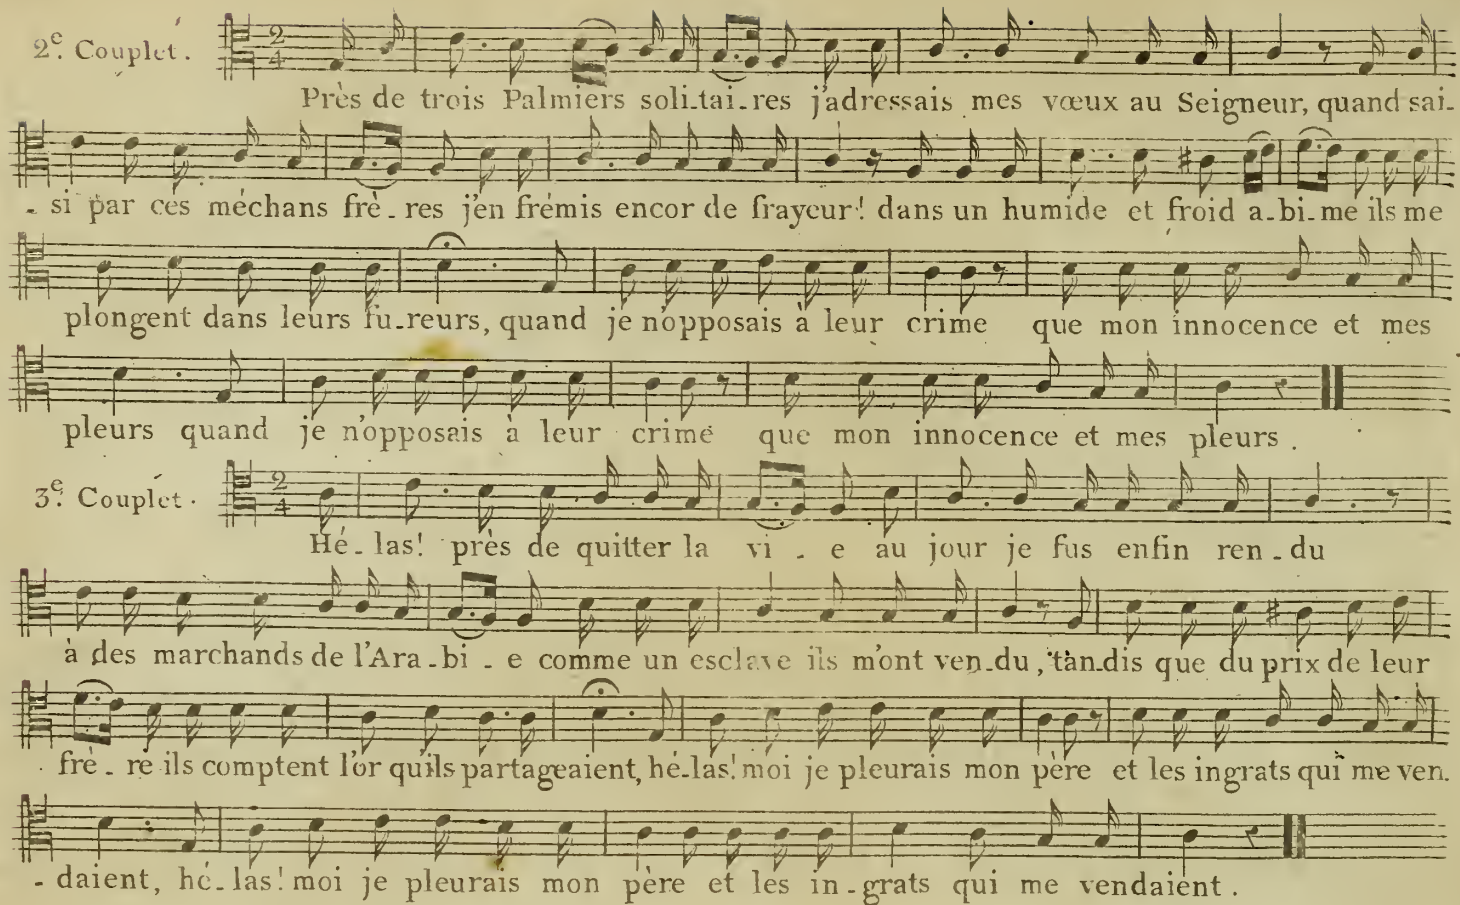 2e. Couplet.
2
4
Près de trois Palmiers soli-tai-res j'adressais mes vœux au Seigneur, quand sai-
- si par ces méchans frè-res j'en frémis encor de frayeur! dans un humide et froid a-bi-me ils me
plongent dans leurs fu-reurs, quand je n'opposais à leur crime que mon innocence et mes
pleurs quand je n'opposais à leur crime que mon innocence et mes pleurs.
3e. Couplet.
2
4
Hé-las! près de quitter la vi-e au jour je fus enfin ren-du
à des marchands de l'Ara-bi-e comme un esclave ils m'ont ven-du, tan-dis que du prix de leur
frè-re ils comptent l'or qu'ils partageaient, hé-las! moi je pleurais mon père et les ingrats qui me ven.
- daient, hé-las! moi je pleurais mon père et les in-grats qui me vendaient.